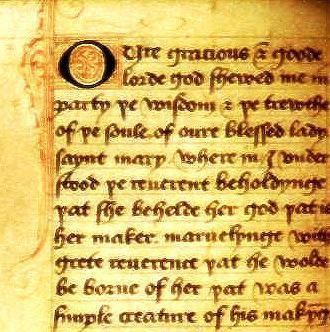 Oure gracious & goode
lorde god shewed me in
party þe wisdom & þe trewthe
of þe soule of oure blessed lady
saynt mary where in I vnder
stood þe reuerent beholdynge
þat she behelde her god þat is
her maker maruelynge with
grete reuerence þat he wolde
be borne of her þat was a
simple creature of his makyng